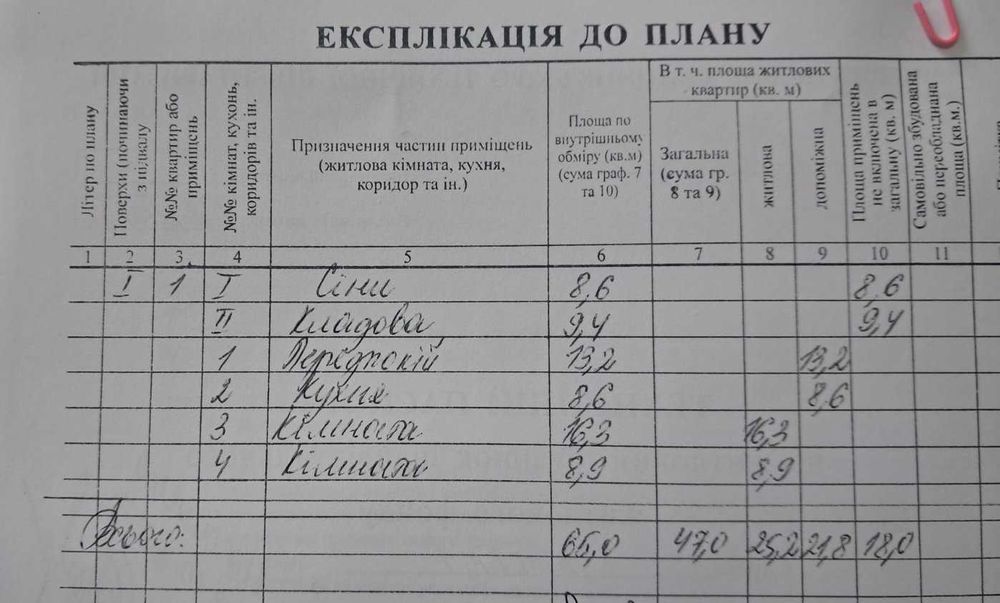 ЕКСПЛІКАЦІЯ ДО ПЛАНУ
Літер по плану
Поверхи (починаючи з підвалу
№№ квартир або приміщень
№№ кімнат, кухонь, коридорів та ін.
Призначення частин приміщень
(житлова кімната, кухня,
коридор та ін.)
Площа по
внутрішньому
обміру (кв.м)
(сума граф. 7
та 10)
В т. ч. площа житлових
квартир (кв. м)
Загальна
(сума гр.
8 та 9)
житлова
допоміжна
Площа приміщень не включена в загальну (кв. м)
Самовільно збудована або переобладнана площа (кв.м.)
1 2 3 4 5 6 7 8 9 10 11
I 1 I Сіни 8,6 8,6
II Кладова 9,4 9,4
1 Передпокій 13,2 13,2
2 Кухня 8,6 8,6
3 Кімната 16,3 16,3
4 Кімната 8,9 8,9
Всього: 65,0 47,0 25,2 21,8 18,0